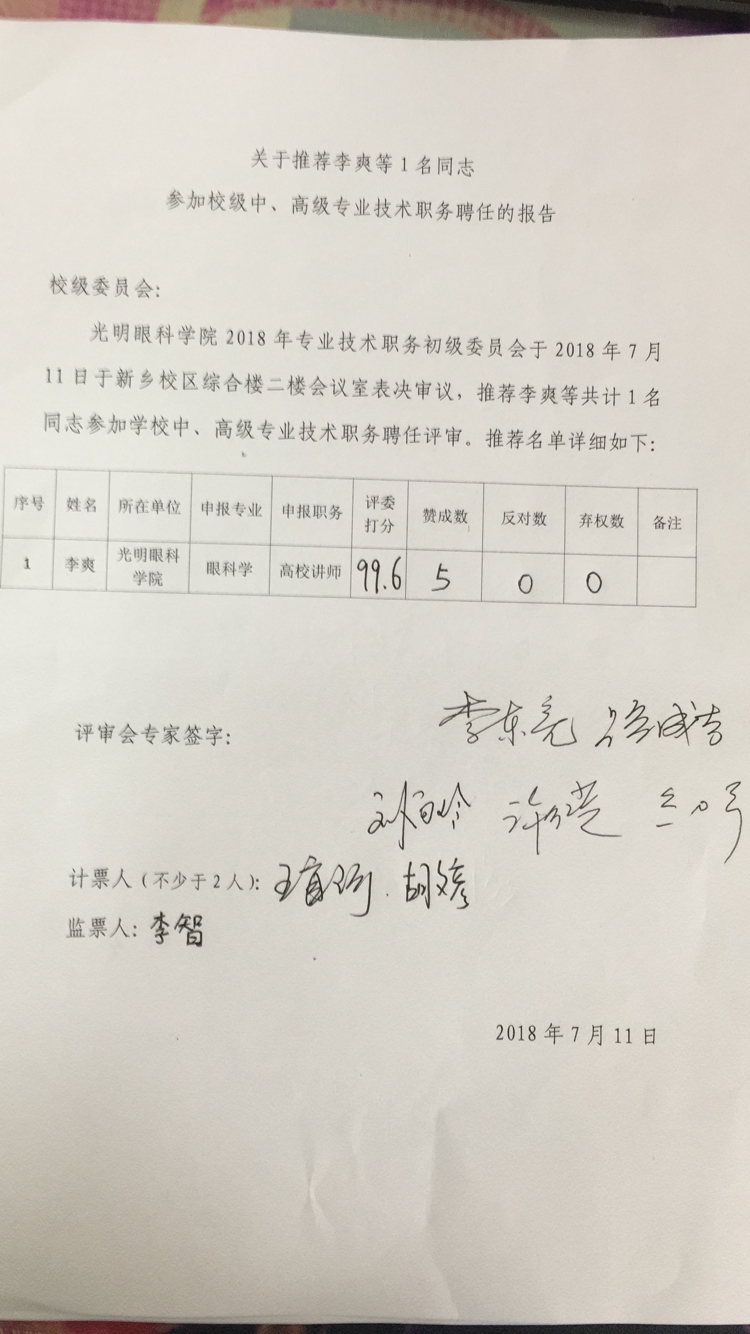 关于推荐李爽等1名同志
参加校级中、高级专业技术职务聘任的报告
校级委员会:
光明眼科学院2018年专业技术职务初级委员会于2018年7月
11日于新乡校区综合楼二楼会议室表决审议，推荐李爽等共计1名
同志参加学校中、高级专业技术职务聘任评审。推荐名单详细如下:
序号 姓名 所在单位 申报专业 申报职务 评委打分 赞成数 反对数 弃权数 备注
1 李爽 光明眼科学院 眼科学 高校讲师 99.6 5 0 0
评审会专家签字: 李东亮
计票人（不少于2人）: 胡文彦
监票人: 李智
2018年7月11日